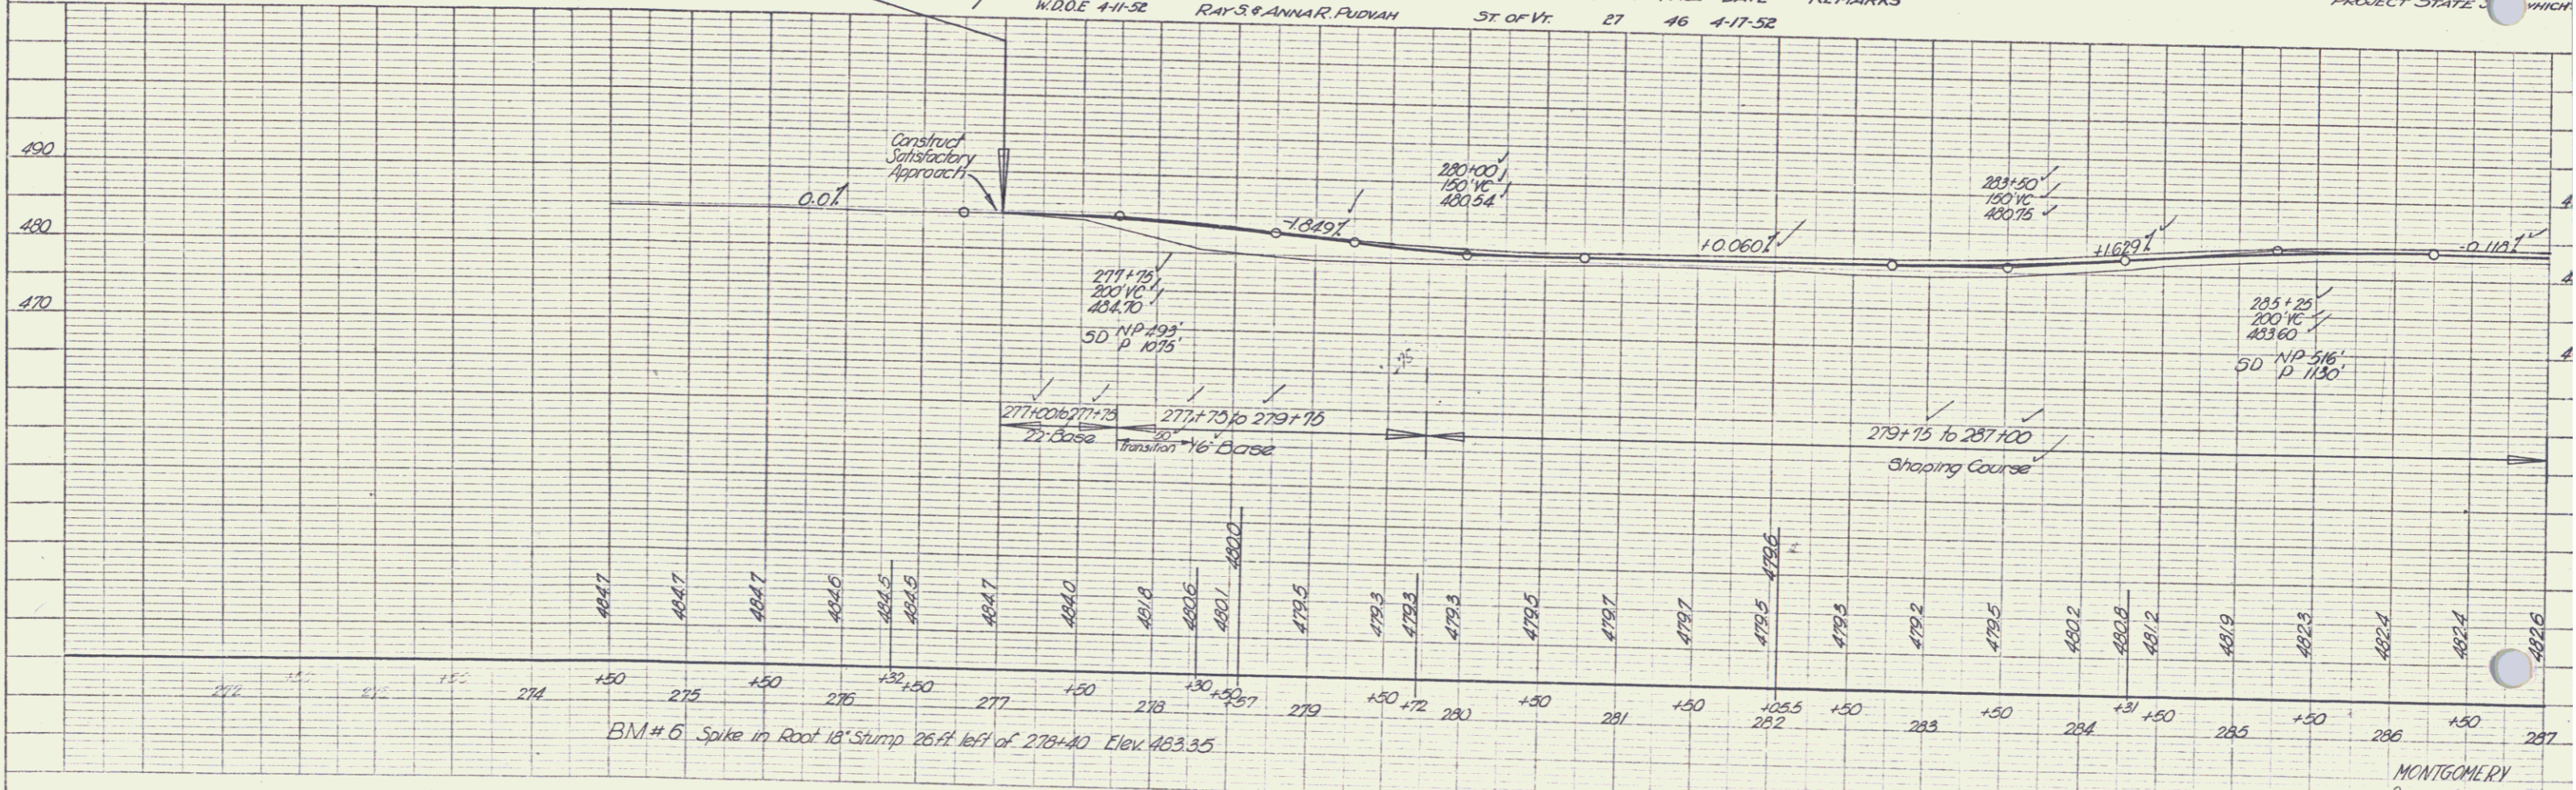 W.D.O.E 4-11-52 RAY S. & ANNA R. PUDVAH ST. OF VT. 27 46 4-17-52
REMARKS
PROJECT STATE
WHICH
490
480
470
0.0%
Construct
Satisfactory
Approach
277+75
200'VC
484.70
SD NP 493'
P 1075'
-1.849%
280+00
150'VC
480.54
+0.060%
283+50
150'VC
480.75
+1.629%
285+25
200'VC
483.60
SD NP 516'
P 1130'
-0.118%
277+00 to 277+75
22" Base
277+75 to 279+75
50'
Transition
16" Base
279+75 to 287+00
Shaping Course
484.7 484.7 484.7 484.6 484.5 484.5 484.7 484.0 481.8 480.6 480.1 480.0 479.5 479.3 479.3 479.3 479.5 479.7 479.7 479.5 479.6 479.3 479.2 479.5 480.2 480.8 481.2 481.9 482.3 482.4 482.4 482.6
272 +50 273 +50 274 +50 275 +50 276 +32 +50 277 +50 278 +30 +50 +57 279 +50 +72 280 +50 281 +50 282 +05.5 +50 283 +50 284 +31 +50 285 +50 286 +50 287
BM#6 Spike in Root 18" Stump 26ft left of 278+40 Elev. 483.35
MONTGOMERY